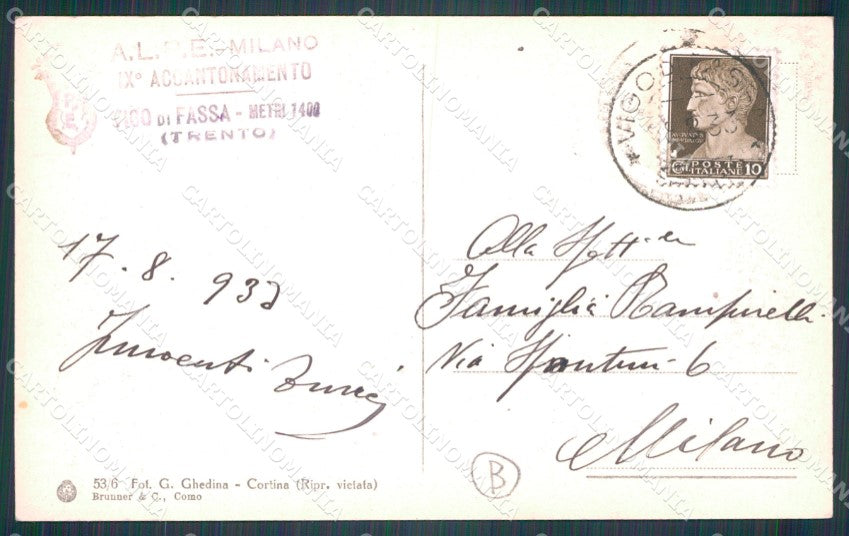 A.L.P.E. - MILANO
IX° ACCANTONAMENTO
VIGO DI FASSA - METRI 1400
(TRENTO)
VIGO DI
POSTE
ITALIANE 10
17. 8. 933
Innocenti
Alla Spett.le
Famiglia
Via 6
Milano
B
53/6 Fot. G. Ghedina - Cortina (Ripr. vietata)
Brunner & C., Como
CARTOLINOMANIA